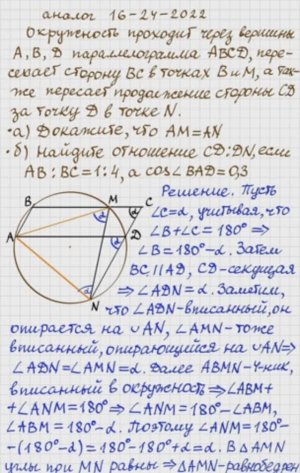 аналог 16-24-2022
Окружность проходит через вершины
А, В, D параллелограмма ABCD, пере-
секает сторону BC в точках В и М, а так-
же пересает продолжение стороны CD
за точку D в точке N.
•а) Докажите, что AM=AN
•б) Найдите отношение CD:DN, если
AB:BC=1:4, а cos∠BAD=0,3
Решение. Пусть
∠C=α, учитывая, что
∠B+∠C=180° ⇒
∠B=180°-α. Затем
BC∥AD, CD-секущая
⇒ ∠ADN=α. Заметим,
что ∠ADN-вписанный, он
опирается на ∪AN, ∠AMN-тоже
вписанный, опирающийся на ∪AN ⇒
∠ADN=∠AMN=α. Далее ABMN-4-ник,
вписанный в окружность ⇒ ∠ABM+
+∠ANM=180° ⇒ ∠ANM=180°-∠ABM,
∠ABM=180°-α. Поэтому ∠ANM=180°-
-(180°-α)=180°-180°+α=α. В △AMN
углы при MN равны ⇒ △AMN-равнобедрен
B
M
C
α
α
A
D
α
α
N